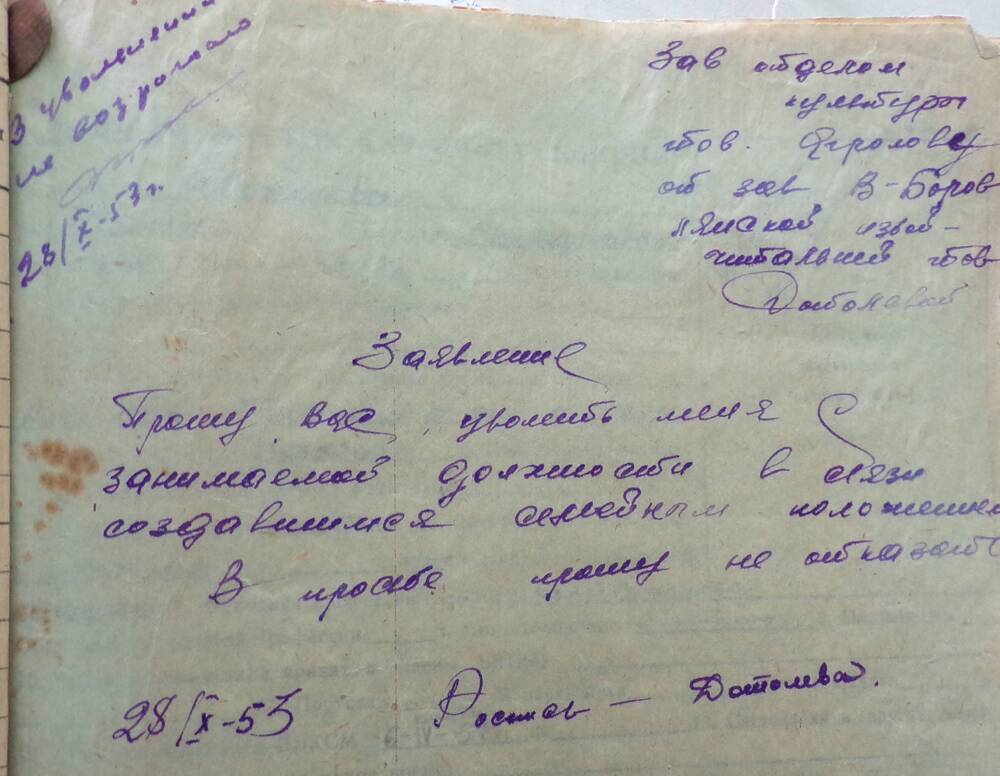 В увольнении
не возражаю
28/IX-53 г.
Зав отделом
культуры
тов. Фролову
от зав В-Боров
лянской избой-
читальней тов
Заявление
Прошу вас уволить меня с
занимаемой должности в связи
создавшимся семейным положением
В прозбе прошу не отказать
28/IX-53